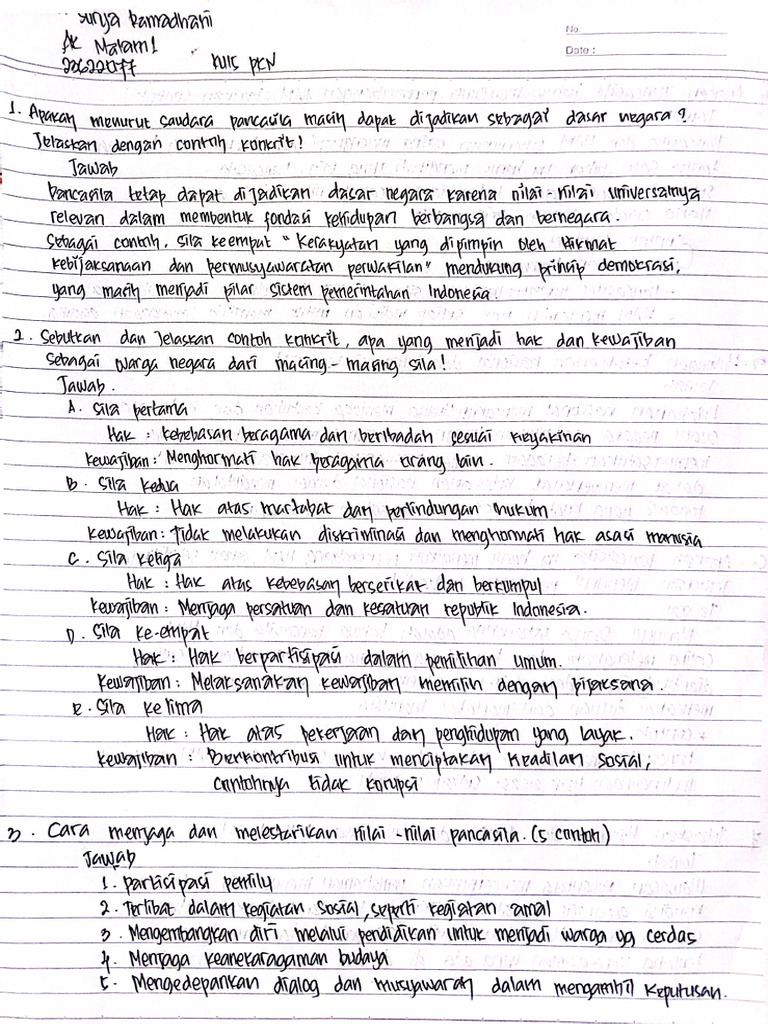 Surya Ramadhani
AK Malam 1
22622077 KUIS PKN
No.
Date :
1. Apakah menurut saudara pancasila masih dapat dijadikan sebagai dasar negara?
Jelaskan dengan contoh konkrit!
Jawab
Pancasila tetap dapat dijadikan dasar negara karena nilai-nilai universalnya
relevan dalam membentuk fondasi kehidupan berbangsa dan bernegara.
Sebagai contoh, sila keempat "Kerakyatan yang dipimpin oleh hikmat
kebijaksanaan dan permusyawaratan perwakilan" mendukung prinsip demokrasi,
yang masih menjadi pilar sistem pemerintahan Indonesia.
2. Sebutkan dan Jelaskan contoh konkrit, apa yang menjadi hak dan kewajiban
sebagai warga negara dari masing-masing sila!
Jawab.
A. Sila pertama
Hak : kebebasan beragama dan beribadah sesuai keyakinan
Kewajiban : Menghormati hak beragama orang lain.
B. Sila kedua
Hak : Hak atas martabat dan perlindungan hukum
Kewajiban : Tidak melakukan diskriminasi dan menghormati hak asasi manusia
C. Sila ketiga
Hak : Hak atas kebebasan berserikat dan berkumpul
Kewajiban : Menjaga persatuan dan kesatuan republik Indonesia.
D. Sila ke-empat
Hak : Hak berpartisipasi dalam pemilihan umum.
Kewajiban : Melaksanakan kewajiban memilih dengan bijaksana.
E. Sila kelima
Hak : Hak atas pekerjaan dan penghidupan yang layak.
Kewajiban : Berkontribusi untuk menciptakan keadilan sosial,
contohnya tidak korupsi
3. Cara menjaga dan melestarikan nilai-nilai pancasila. (5 contoh)
Jawab
1. partisipasi pemilu
2. Terlibat dalam kegiatan sosial, seperti kegiatan amal
3. Mengembangkan diri melalui pendidikan untuk menjadi warga yg cerdas
4. Menjaga keanekaragaman budaya
5. Mengedepankan dialog dan musyawarah dalam mengambil keputusan.